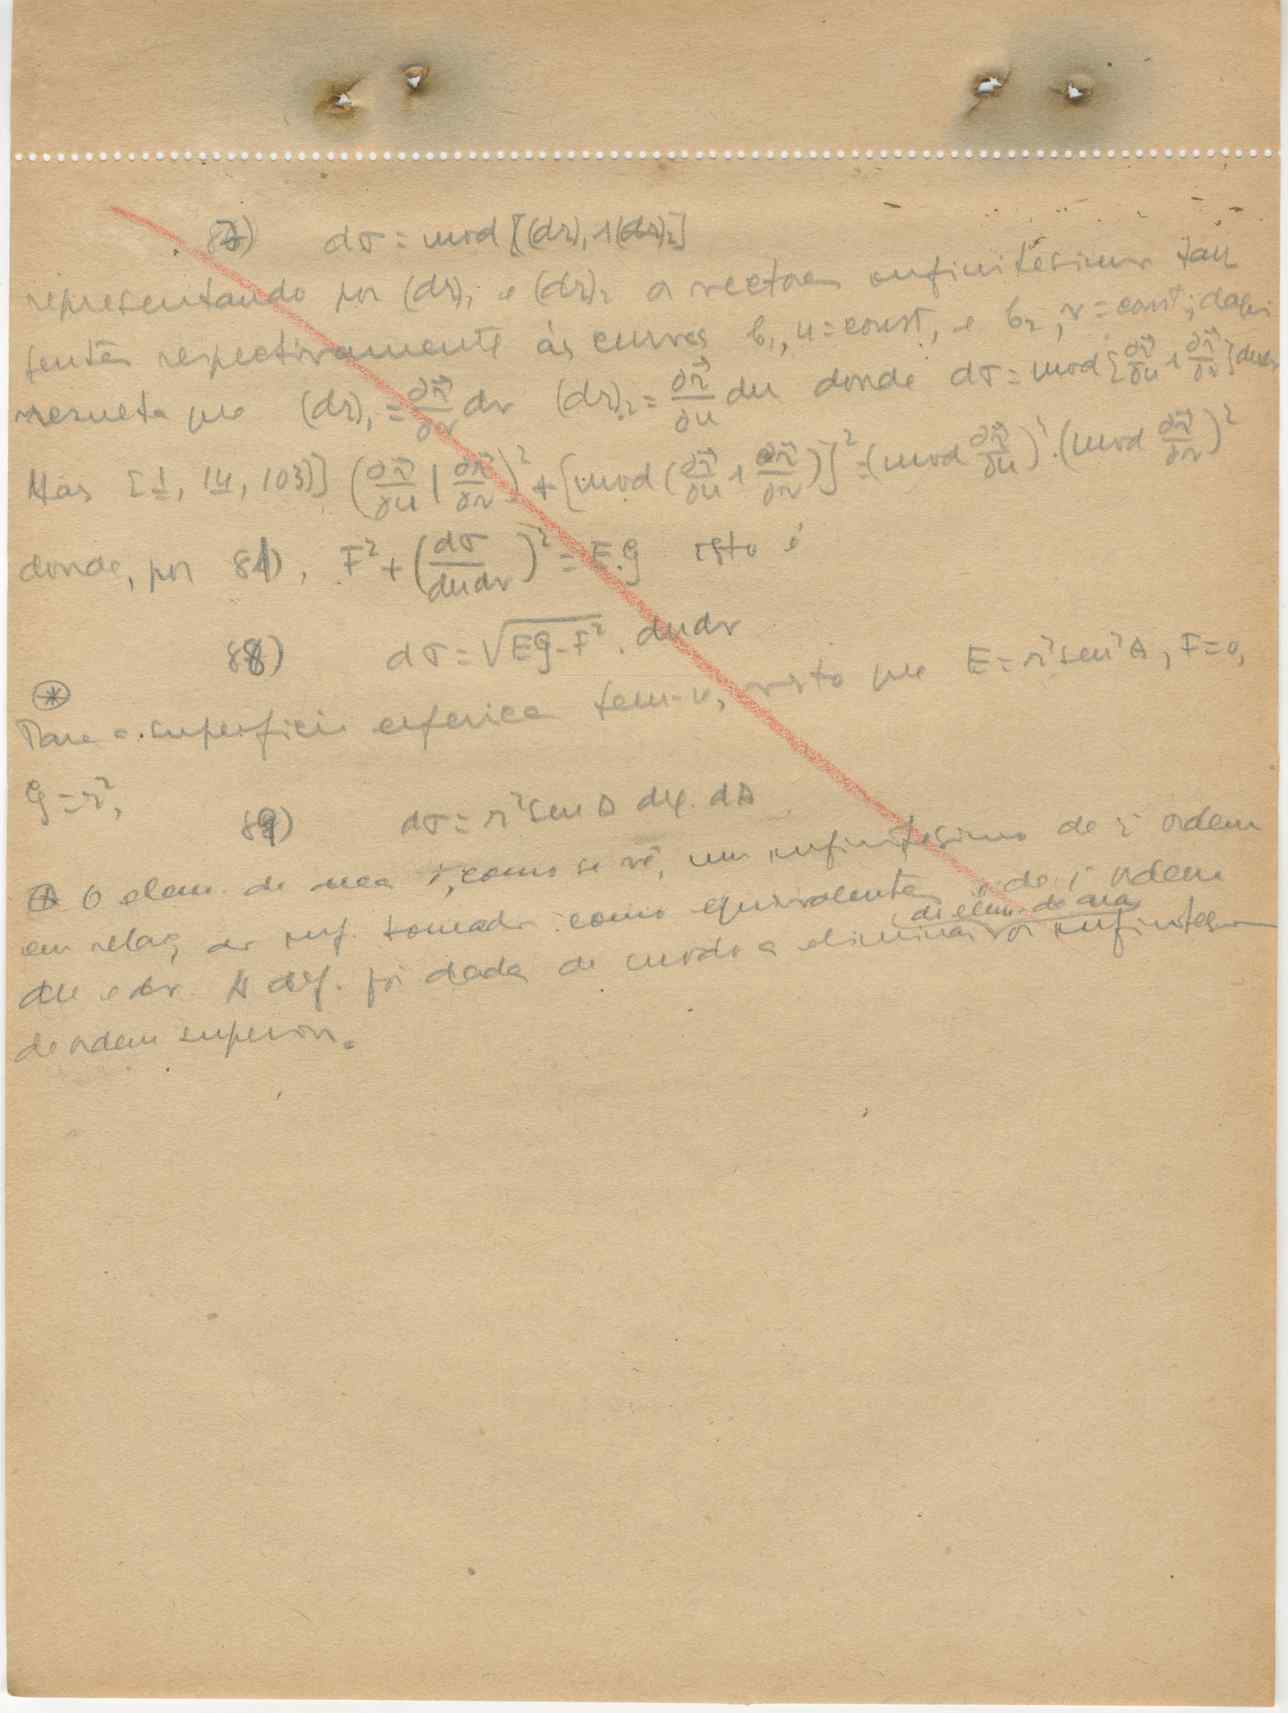 87) dσ = mod [(dr)₁ ∧ (dr)₂]
representando por (dr)₁ e (dr)₂ os vectores infinitésimos tan
gentes respectivamente às curvas b₁, u = const, e b₂, v = const; daqui
resulta que (dr)₁ = ∂r⃗/∂v dv (dr)₂ = ∂r⃗/∂u du donde dσ = mod [∂r⃗/∂u ∧ ∂r⃗/∂v] dudv
Mas [1, 14, 103)] (∂r⃗/∂u | ∂r⃗/∂v)² + [mod (∂r⃗/∂u ∧ ∂r⃗/∂v)]² = (mod ∂r⃗/∂u)² . (mod ∂r⃗/∂v)²
donde, por 81), F² + (dσ/dudv)² = E.G isto é
88) dσ = √(EG - F²) . dudv
⊛
Para a superfície esférica tem-se, visto que E = r² sen² θ, F = 0,
G = r²,
89) dσ = r² sen θ dφ. dθ
⊛ O elem. de área é, como se vê, um infinitésimo de 2ª ordem
em relaç. aos inf. tomados como equivalentes e de 1ª ordem
(do elem. de área)
du e dv. A def. foi dada de modo a eliminar os infinitésimos
de ordem superior.